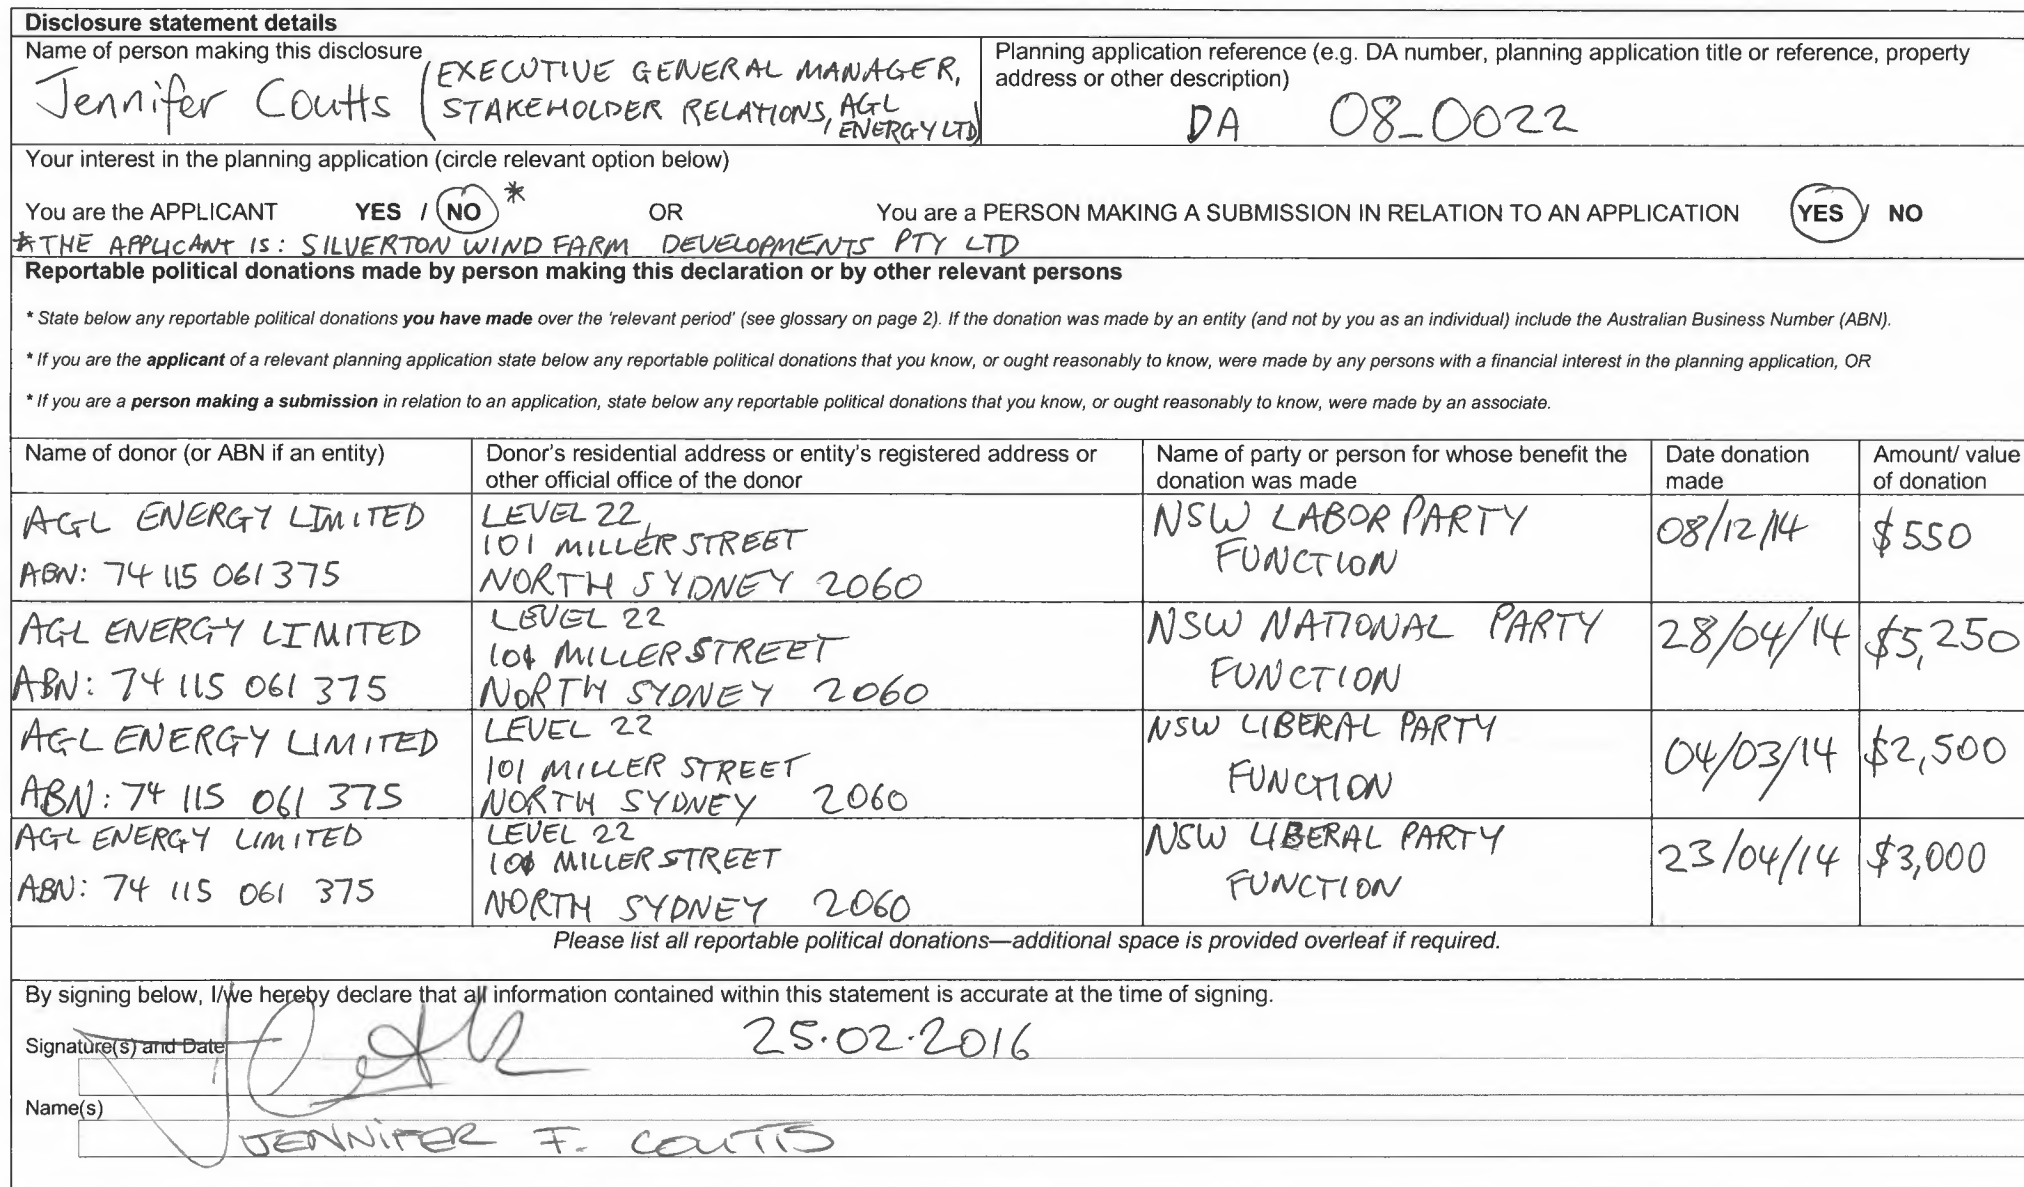 Disclosure statement details
Name of person making this disclosure
Jennifer Coutts (EXECUTIVE GENERAL MANAGER, STAKEHOLDER RELATIONS, AGL ENERGY LTD)
Planning application reference (e.g. DA number, planning application title or reference, property
address or other description)
DA 08_0022
Your interest in the planning application (circle relevant option below)
You are the APPLICANT YES / NO * OR You are a PERSON MAKING A SUBMISSION IN RELATION TO AN APPLICATION YES / NO
* THE APPLICANT IS: SILVERTON WIND FARM DEVELOPMENTS PTY LTD
Reportable political donations made by person making this declaration or by other relevant persons
* State below any reportable political donations you have made over the 'relevant period' (see glossary on page 2). If the donation was made by an entity (and not by you as an individual) include the Australian Business Number (ABN).
* If you are the applicant of a relevant planning application state below any reportable political donations that you know, or ought reasonably to know, were made by any persons with a financial interest in the planning application, OR
* If you are a person making a submission in relation to an application, state below any reportable political donations that you know, or ought reasonably to know, were made by an associate.
Name of donor (or ABN if an entity)
Donor's residential address or entity's registered address or
other official office of the donor
Name of party or person for whose benefit the
donation was made
Date donation
made
Amount/ value
of donation
AGL ENERGY LIMITED
ABN: 74 115 061 375
LEVEL 22,
101 MILLER STREET
NORTH SYDNEY 2060
NSW LABOR PARTY
FUNCTION
08/12/14
$550
AGL ENERGY LIMITED
ABN: 74 115 061 375
LEVEL 22
101 MILLER STREET
NORTH SYDNEY 2060
NSW NATIONAL PARTY
FUNCTION
28/04/14
$5,250
AGL ENERGY LIMITED
ABN: 74 115 061 375
LEVEL 22
101 MILLER STREET
NORTH SYDNEY 2060
NSW LIBERAL PARTY
FUNCTION
04/03/14
$2,500
AGL ENERGY LIMITED
ABN: 74 115 061 375
LEVEL 22
101 MILLER STREET
NORTH SYDNEY 2060
NSW LIBERAL PARTY
FUNCTION
23/04/14
$3,000
Please list all reportable political donations—additional space is provided overleaf if required.
By signing below, I/we hereby declare that all information contained within this statement is accurate at the time of signing.
Signature(s) and Date
25.02.2016
Name(s)
JENNIFER F. COUTTS